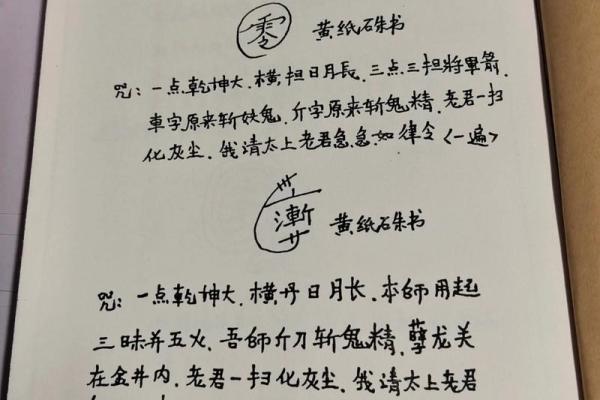 零 黄纸硃书
咒:一点乾坤大.横担日月長.三点三担將軍箭.
車字原来斩妖鬼.斤字原来斩鬼精.老君一扫
化灰尘.俄请太上老君急急如律令<一遍>
漸 黄纸硃书
咒:一点乾坤大.横丹日月长.本師用起
三昧并五火.吾師斤刀斩鬼精.孽龙关
在金井内.老君一扫化灰尘.俄请太上老君